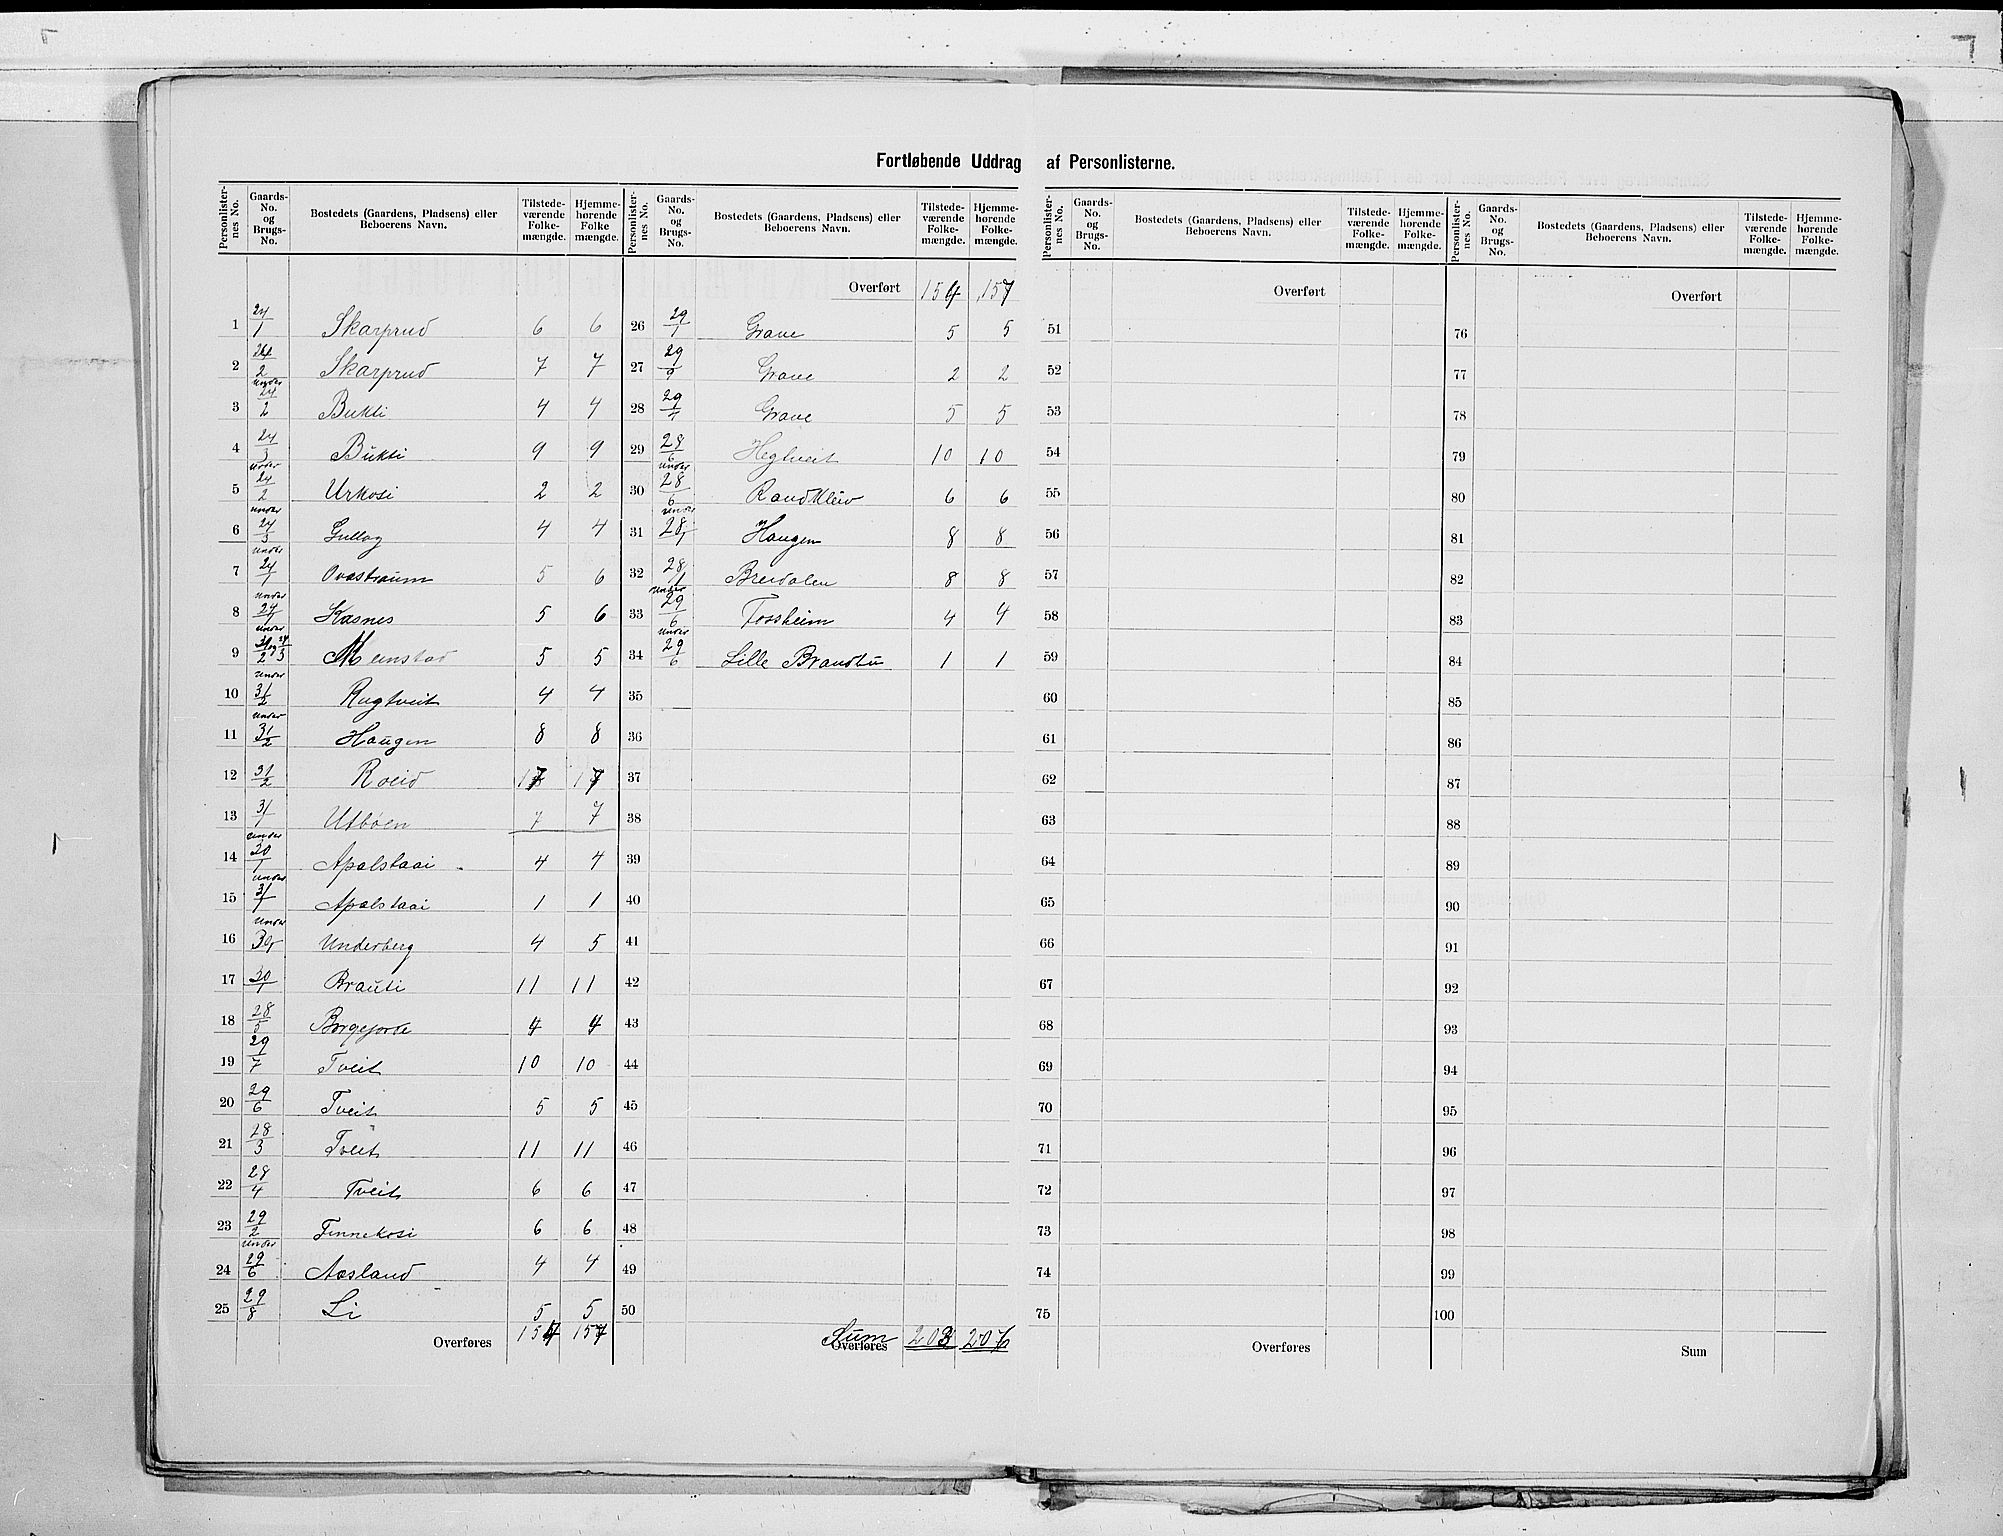 Fortløbende Uddrag af Personlisterne.
Personlister-nes No. Gaards-No. og Brugs-No. Bostedets (Gaardens, Pladsens) eller Beboerens Navn. Tilstede-værende Folke-mængde. Hjemme-hørende Folke mængde. Personlister-nes No. Gaards-No. og Brugs-No. Bostedets (Gaardens, Pladsens) eller Beboerens Navn. Tilstede-værende Folke-mængde. Hjemme-hørende Folke-mængde. Personlister-nes No. Gaards-No. og Brugs-No. Bostedets (Gaardens, Pladsens) eller Beboerens Navn. Tilstede-værende Folke-mængde. Hjemme-hørende Folke-mængde. Personlister-nes No. Gaards-No. og Brugs-No. Bostedets (Gaardens, Pladsens) eller Beboerens Navn. Tilstede-værende Folke-mængde. Hjemme-hørende Folke-mængde.
Overført 154 157 Overført Overført
1 24/1 Skarprud 6 6 26 29/1 Grave 5 5 51 76
2 24/2 Skarprud 7 7 27 29/9 Grave 2 2 52 77
3 under 24/2 Bukti 4 4 28 29/1 Grave 5 5 53 78
4 24/3 Bukti 9 9 29 28/6 Hegtveit 10 10 54 79
5 under 24/2 Urkosi 2 2 30 under 28/6 Randkleiv 6 6 55 80
6 under 24/3 Gullog 4 4 31 under 28/1 Haugen 8 8 56 81
7 under 24/1 Ovastraum 5 6 32 28/1 Breidalen 8 8 57 82
8 under 24/1 Kasnes 5 6 33 under 29/6 Fossheim 4 4 58 83
9 under 31/2 og 24/3 Meinstad 5 5 34 under 29/6 Lille Brandtu 1 1 59 84
10 under 31/2 Rugtveit 4 4 35 60 85
11 under 31/2 Haugen 8 8 36 61 86
12 31/2 Roeid 17 17 37 62 87
13 31/1 Utbøen 7 7 38 63 88
14 under 30/1 Apalstaai 4 4 39 64 89
15 under 31/1 Apalstaai 1 1 40 65 90
16 under 30/1 Underberg 4 5 41 66 91
17 30/1 Brauti 11 11 42 67 92
18 28/5 Borgejorde 4 4 43 68 93
19 29/7 Tveit 10 10 44 69 94
20 29/6 Tveit 5 5 45 70 95
21 28/3 Tveit 11 11 46 71 96
22 28/4 Tveit 6 6 47 72 97
23 29/2 Finnekosi 6 6 48 73 98
24 under 29/6 Aasland 4 4 49 74 99
25 29/8 Li 5 5 50 75 100
Overføres 154 157 Sum Overføres 203 206 Overføres Sum